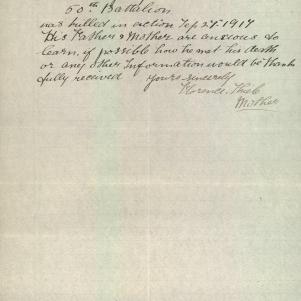 50th Battalion
was killed in action Sep 25 1917
His Father & Mother are anxious to
learn if possible how he met his death
or any other Information would be thank
fully received Yours sincerely
Florence
Mother